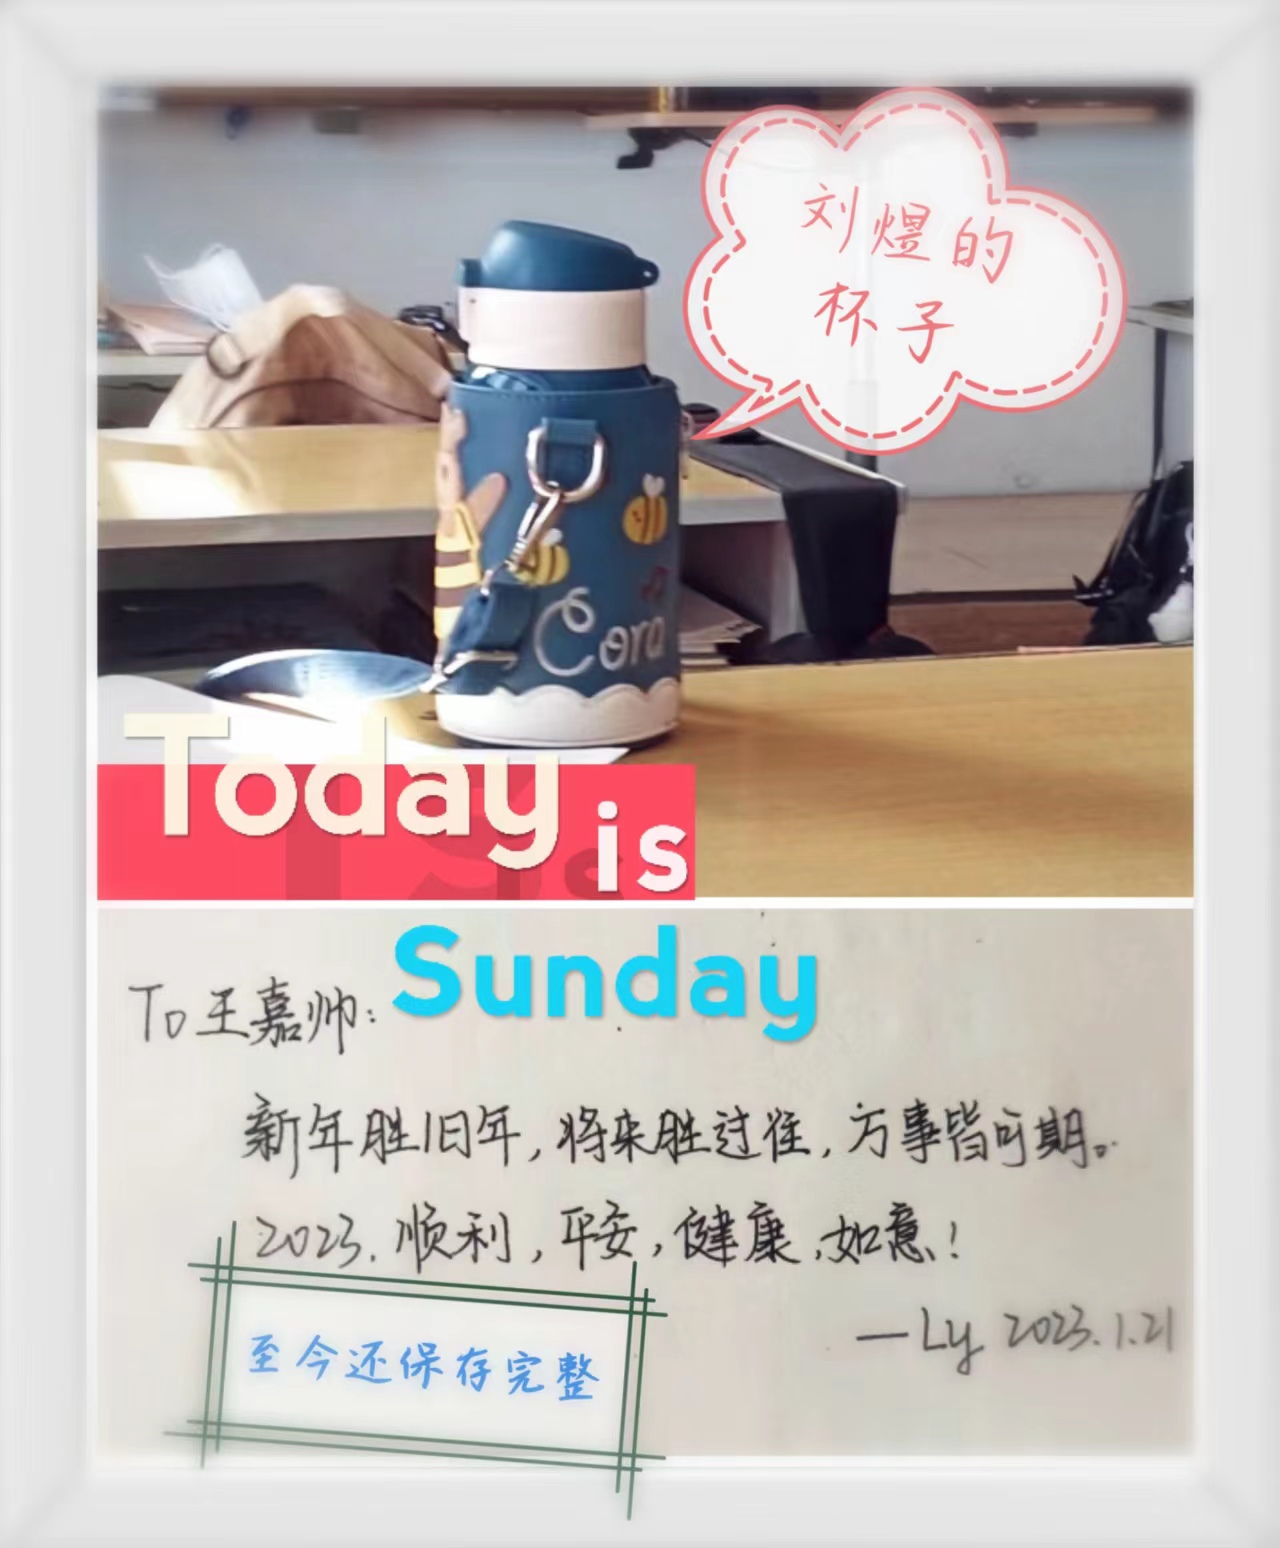 刘煜的
杯子
Cora
Today
is
Sunday
To王嘉帅:
新年胜旧年,将来胜过往,万事皆可期。
2023.顺利,平安,健康,如意!
—Ly 2023.1.21
至今还保存完整